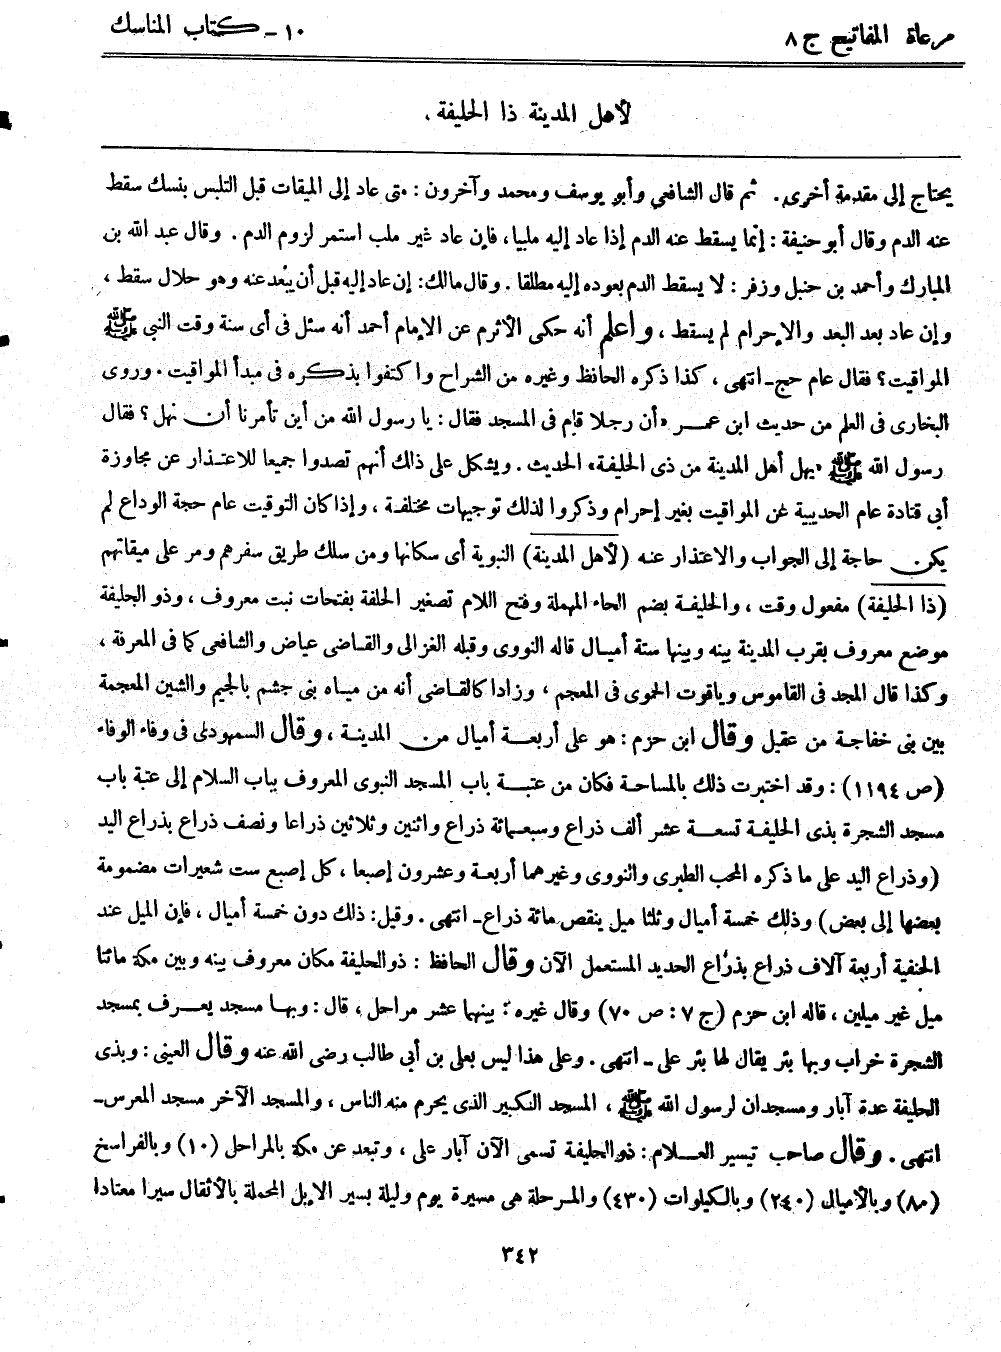 مرعاة المفاتيح ج ٨
١٠ - كتاب المناسك
لأهل المدينة ذا الحليفة ،
يحتاج إلى مقدمة أخرى. ثم قال الشافعي وأبو يوسف ومحمد وآخرون : متى عاد إلى الميقات قبل التلبس بنسك سقط
عنه الدم وقال أبو حنيفة : إنما يسقط عنه الدم إذا عاد إليه ملبيا، فإن عاد غير ملب استمر لزوم الدم . وقال عبد الله بن
المبارك وأحمد بن حنبل وزفر : لا يسقط الدم بعوده إليه مطلقا . وقال مالك: إن عاد إليه قبل أن يبعد عنه وهو حلال سقط ،
وإن عاد بعد البعد والإحرام لم يسقط ، واعلم أنه حكى الأثرم عن الإمام أحمد أنه سئل فى أى سنة وقت النبى ﷺ
المواقيت؟ فقال عام حج - انتهى ، كذا ذكره الحافظ وغيره من الشراح واكتفوا بذكره فى مبدأ المواقيت . وروى
البخارى فى العلم من حديث ابن عمر «أن رجلا قام فى المسجد فقال : يا رسول الله من أين تأمرنا أن نهل ؟ فقال
رسول الله ﷺ «يهل أهل المدينة من ذى الحليفة» الحديث . ويشكل على ذلك أنهم تصدوا جميعا للاعتذار عن مجاوزة
أبى قتادة عام الحديبية عن المواقيت بغير إحرام وذكروا لذلك توجيهات مختلفة ، وإذا كان التوقيت عام حجة الوداع لم
يكن حاجة إلى الجواب والاعتذار عنه (لأهل المدينة) النبوية أى سكانها ومن سلك طريق سفرهم ومر على ميقاتهم
(ذا الحليفة) مفعول وقت ، والحليفة بضم الحاء المهملة وفتح اللام تصغير الحلفة بفتحات نبت معروف ، وذو الحليفة
موضع معروف بقرب المدينة بينه وبينها ستة أميال قاله النووى وقبله الغزالى والقاضى عياض والشافعى كما فى المعرفة ،
وكذا قال المجد فى القاموس وياقوت الحموى فى المعجم ، وزادا كالقاضى أنه من مياه بنى جشم بالجيم والشين المعجمة
بين بنى خفاجة من عقيل وقال ابن حزم : هو على أربعة أميال من المدينة ، وقال السمهودى فى وفاء الوفاء
(ص ١١٩٤) : وقد اختبرت ذلك بالمساحة فكان من عتبة باب المسجد النبوى المعروف بباب السلام إلى عتبة باب
مسجد الشجرة بذى الحليفة تسعة عشر ألف ذراع وسبعمائة ذراع واثنين وثلاثين ذراعا ونصف ذراع بذراع اليد
(وذراع اليد على ما ذكره المحب الطبرى والنووى وغيرهما أربعة وعشرون إصبعا ، كل إصبع ست شعيرات مضمومة
بعضها إلى بعض) وذلك خمسة أميال وثلثا ميل ينقص مائة ذراع - انتهى . وقيل: ذلك دون خمسة أميال ، فإن الميل عند
الحنفية أربعة آلاف ذراع بذراع الحديد المستعمل الآن وقال الحافظ : ذو الحليفة مكان معروف بينه وبين مكة مائتا
ميل غير ميلين ، قاله ابن حزم (ج ٧ : ص ٧٠) وقال غيره : بينهما عشر مراحل ، قال : وبها مسجد يعرف بمسجد
الشجرة خراب وبها بئر يقال لها بئر على - انتهى . وعلى هذا ليس بعلى بن أبى طالب رضى الله عنه وقال العينى : وبذى
الحليفة عدة آبار ومسجدان لرسول الله ﷺ ، المسجد الكبير الذى يحرم منه الناس ، والمسجد الآخر مسجد المعرس -
انتهى . وقال صاحب تيسير العلام : ذو الحليفة تسمى الآن آبار على ، وتبعد عن مكة بالمراحل (١٠) وبالفراسخ
(٨٠) وبالأميال (٢٤٠) وبالكيلوات (٤٣٠) والمرحلة هى مسيرة يوم وليلة بسير الإبل المحملة بالأثقال سيرا معتادا
٣٤٢